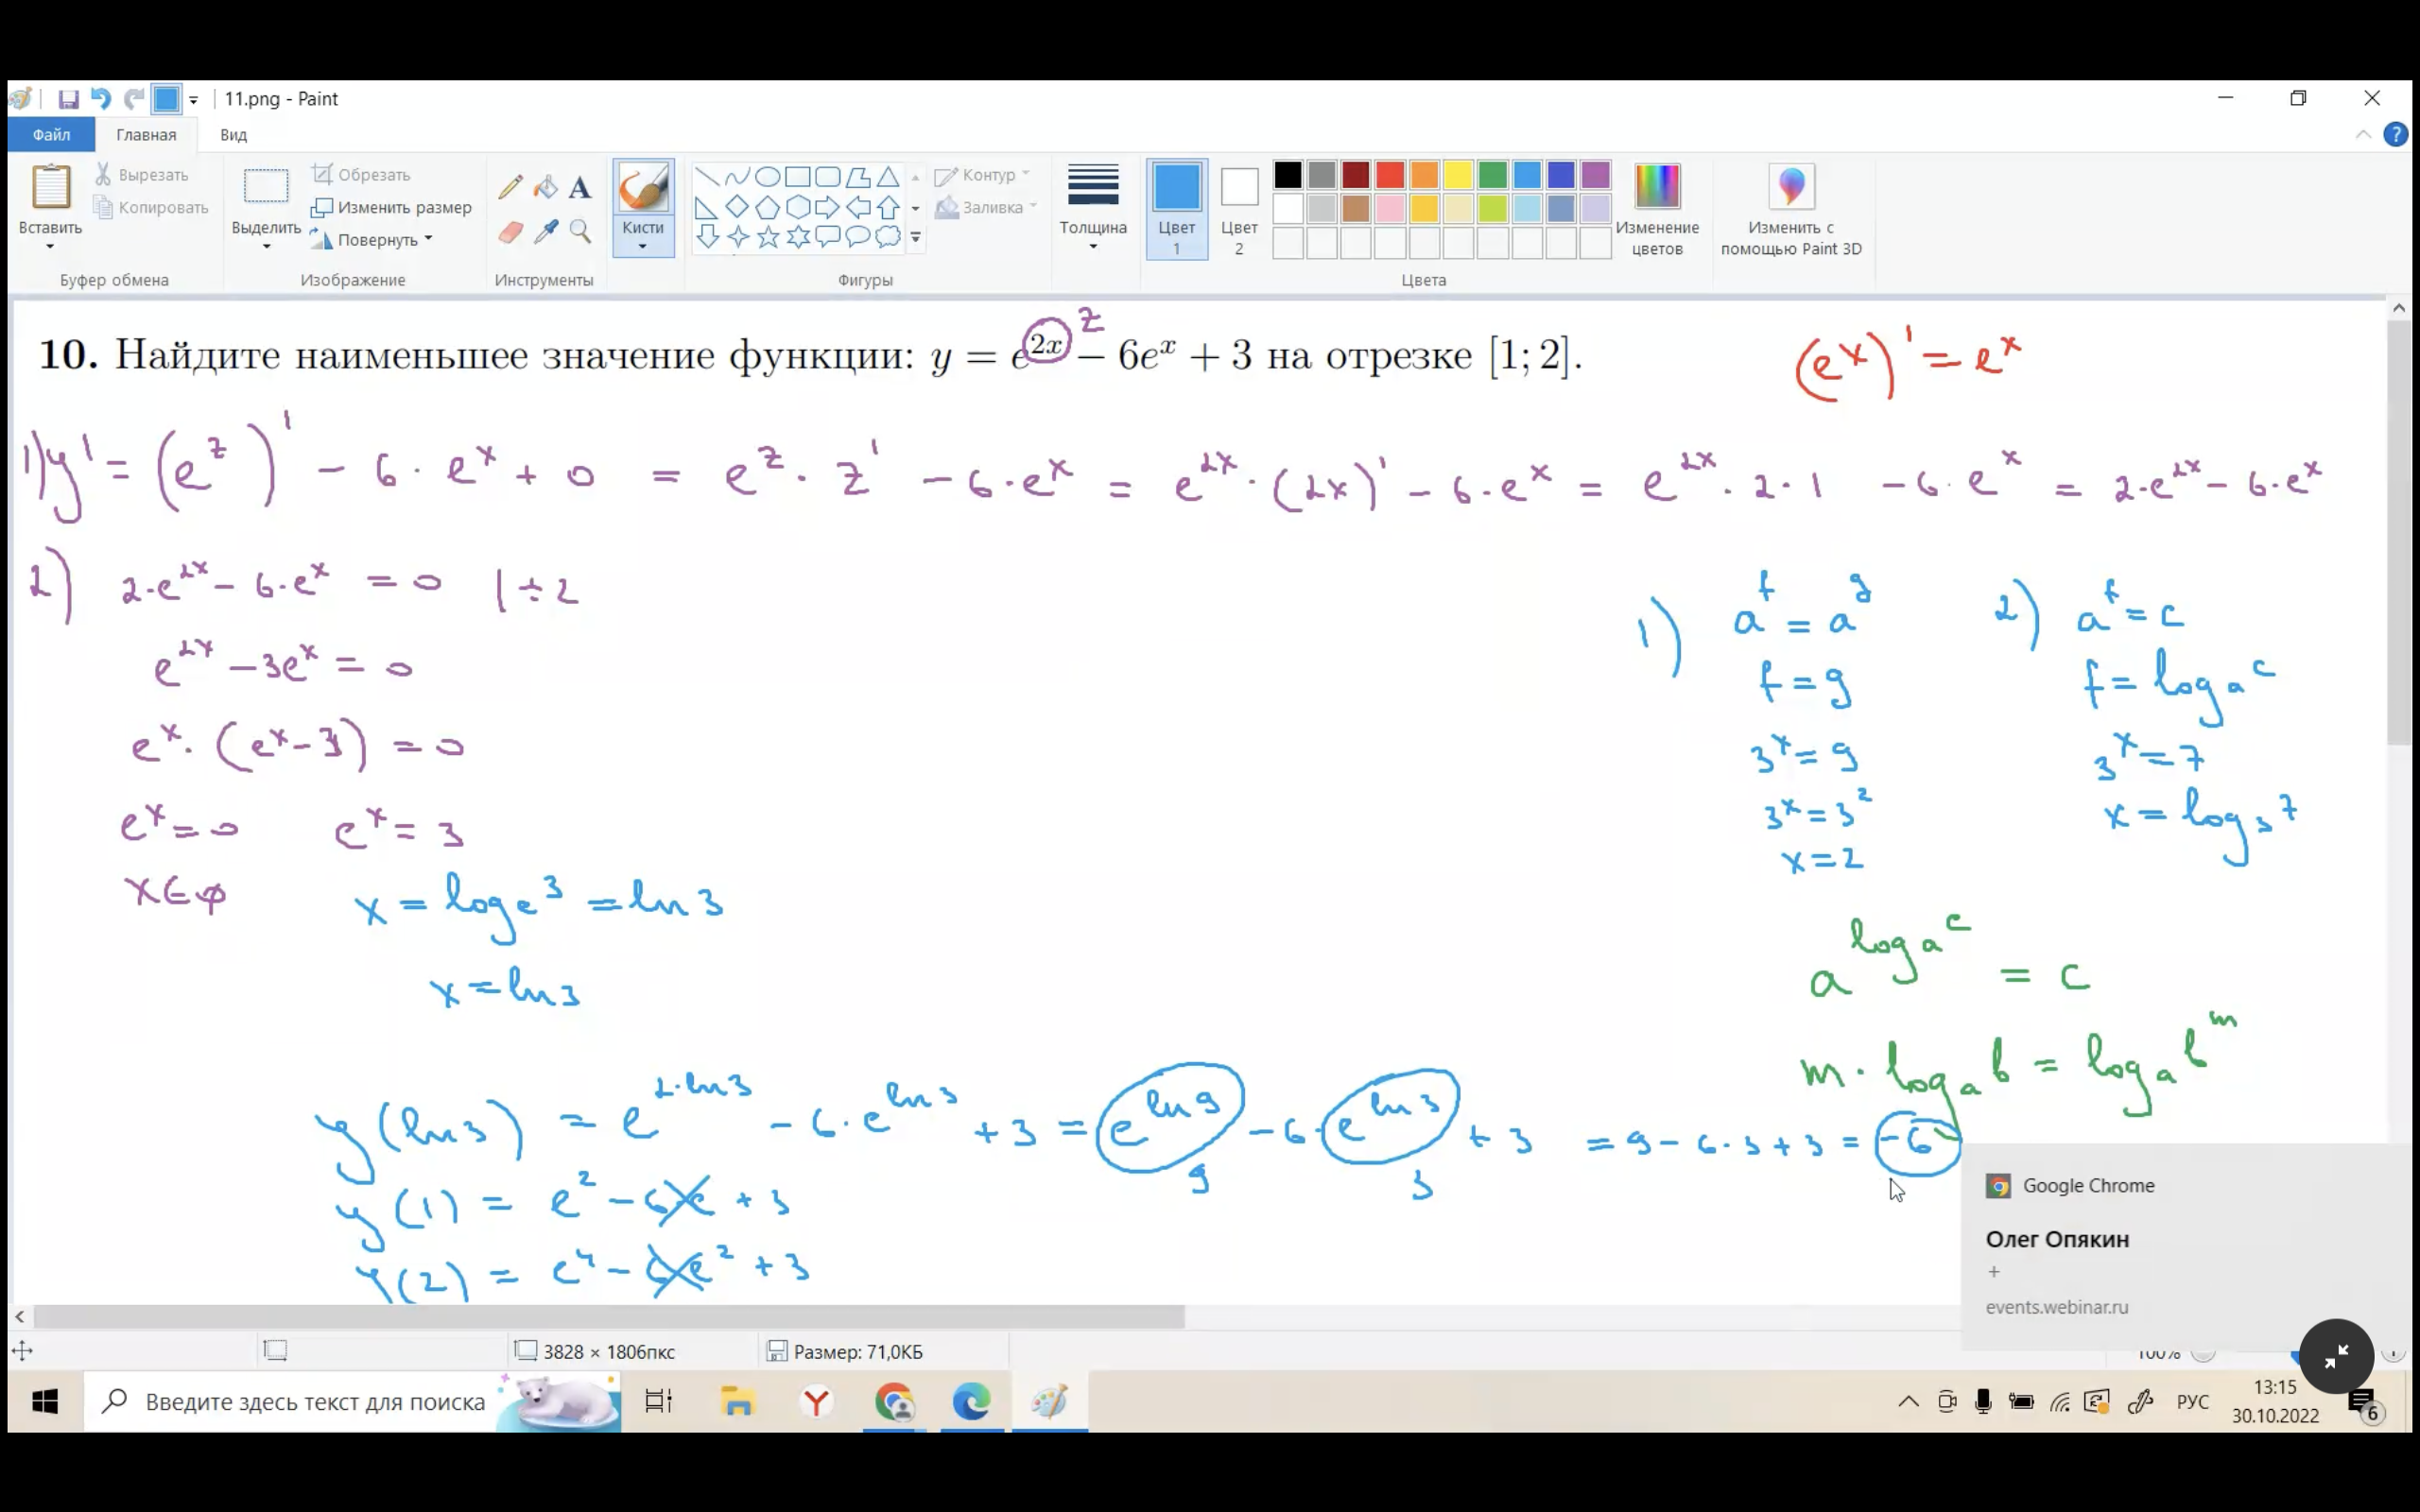 11.png - Paint
Файл Главная Вид
Вставить Вырезать Копировать Буфер обмена
Выделить Обрезать Изменить размер Повернуть Изображение
Инструменты
Кисти
Фигуры
Контур Заливка
Толщина
Цвет 1 Цвет 2
Цвета
Изменение цветов
Изменить с помощью Paint 3D
z
10. Найдите наименьшее значение функции: y = e^{2x} − 6e^x + 3 на отрезке [1; 2].
(e^x)' = e^x
1) y' = (e^z)' − 6 · e^x + 0 = e^z · z' − 6 · e^x = e^{2x} · (2x)' − 6 · e^x = e^{2x} · 2 · 1 − 6 · e^x = 2 · e^{2x} − 6 · e^x
2) 2 · e^{2x} − 6 · e^x = 0 | ÷ 2
e^{2x} − 3e^x = 0
e^x · (e^x − 3) = 0
e^x = 0 e^x = 3
x ∈ ∅
x = log_e 3 = ln 3
x = ln 3
1) a^f = a^g
f = g
3^x = 9
3^x = 3^2
x = 2
2) a^f = c
f = log_a c
3^x = 7
x = log_3 7
a^{log_a c} = c
m · log_a b = log_a b^m
y(ln 3) = e^{2·ln 3} − 6 · e^{ln 3} + 3 = e^{ln 9} − 6 · e^{ln 3} + 3 = 9 − 6 · 3 + 3 = −6
9 3
y(1) = e^2 − 6e + 3
y(2) = e^4 − 6e^2 + 3
Google Chrome
Олег Опякин
+
events.webinar.ru
3828 × 1806пкс Размер: 71,0КБ 100%
Введите здесь текст для поиска
РУС
13:15
30.10.2022
6